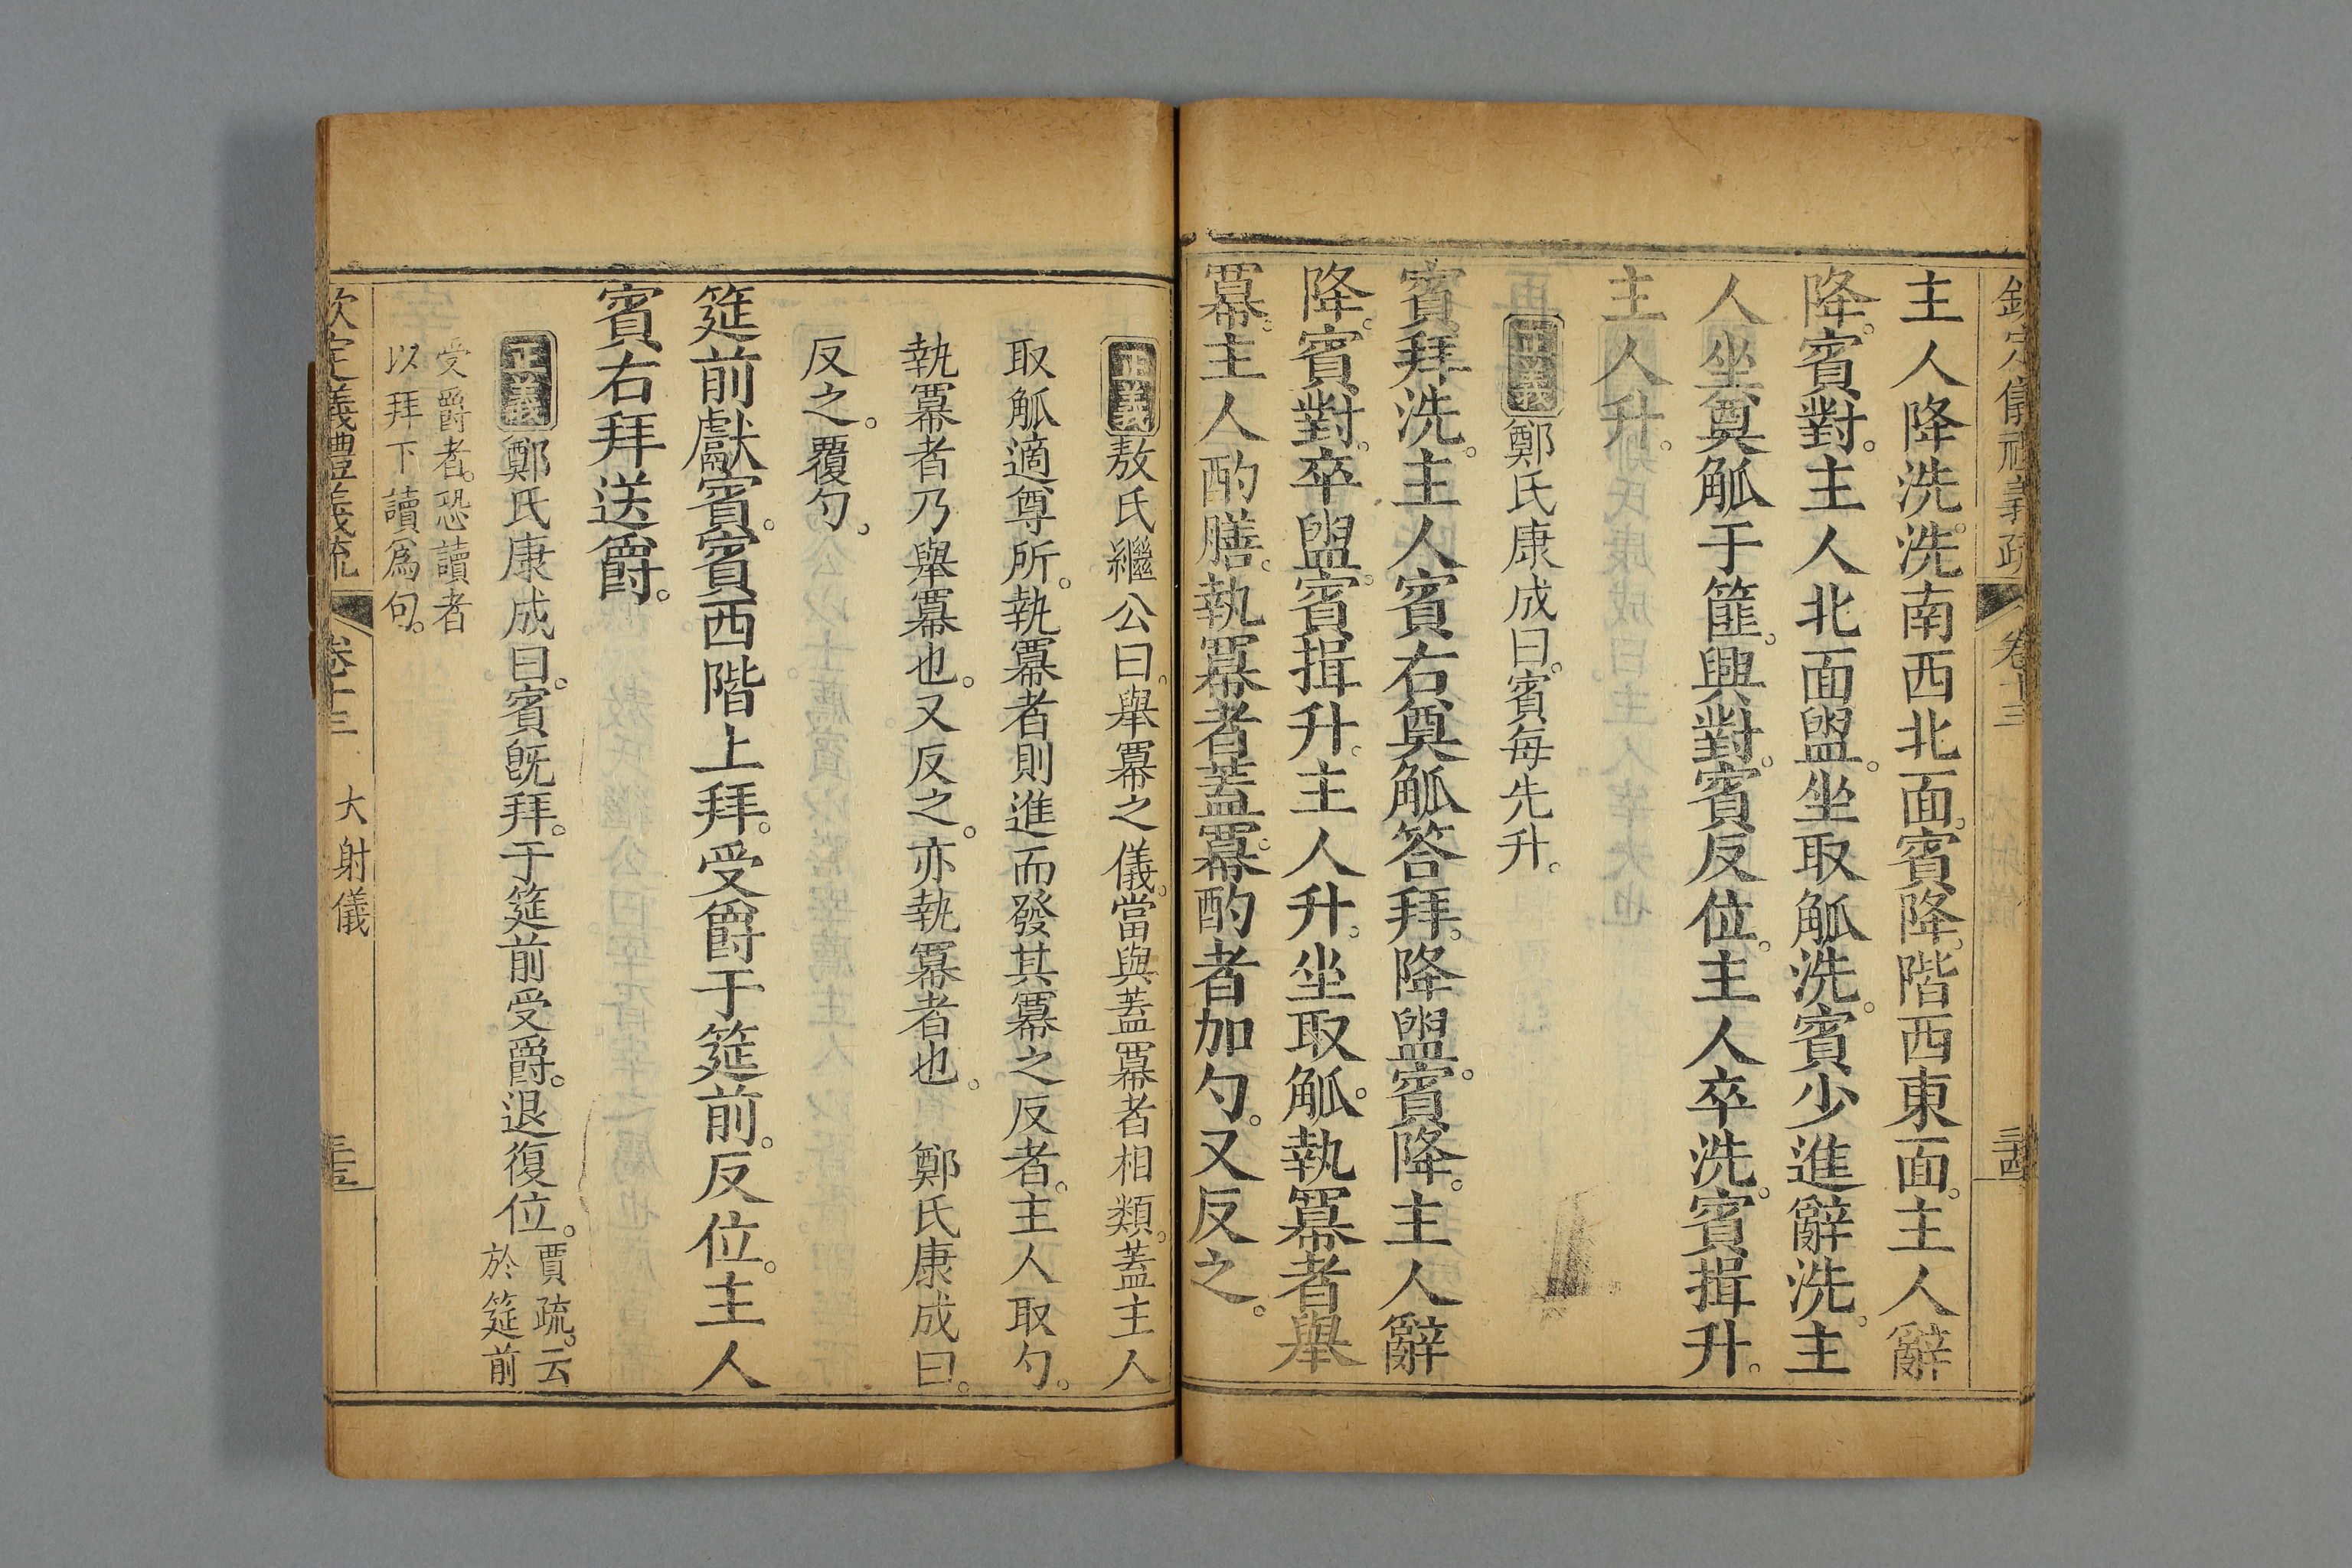 欽定儀禮義疏 卷十三 三十四
主人降洗。洗南西北面。賓降。階西東面。主人辭
降。賓對。主人北面盥。坐取觚洗。賓少進辭洗。主
人坐奠觚于篚。興對。賓反位。主人卒洗。賓揖升。
主人升。
正義鄭氏康成曰。賓每先升。
賓拜洗。主人賓右奠觚答拜。降盥。賓降。主人辭
降。賓對。卒盥。賓揖升。主人升。坐取觚。執冪者舉
冪。主人酌膳。執冪者蓋冪。酌者加勺。又反之。
正義敖氏繼公曰。舉冪之儀。當與蓋冪者相類。蓋主人
取觚適尊所。執冪者則進而發其冪之反者。主人取勺。
執冪者乃舉冪也。又反之。亦執冪者也。 鄭氏康成曰。
反之。覆勺。
筵前獻賓。賓西階上拜。受爵于筵前。反位。主人
賓右拜送爵。
正義鄭氏康成曰。賓旣拜。于筵前受爵。退復位。賈疏。云
於筵前
受爵者。恐讀者
以拜下讀爲句。
欽定儀禮義疏 卷十三 大射儀 三十五